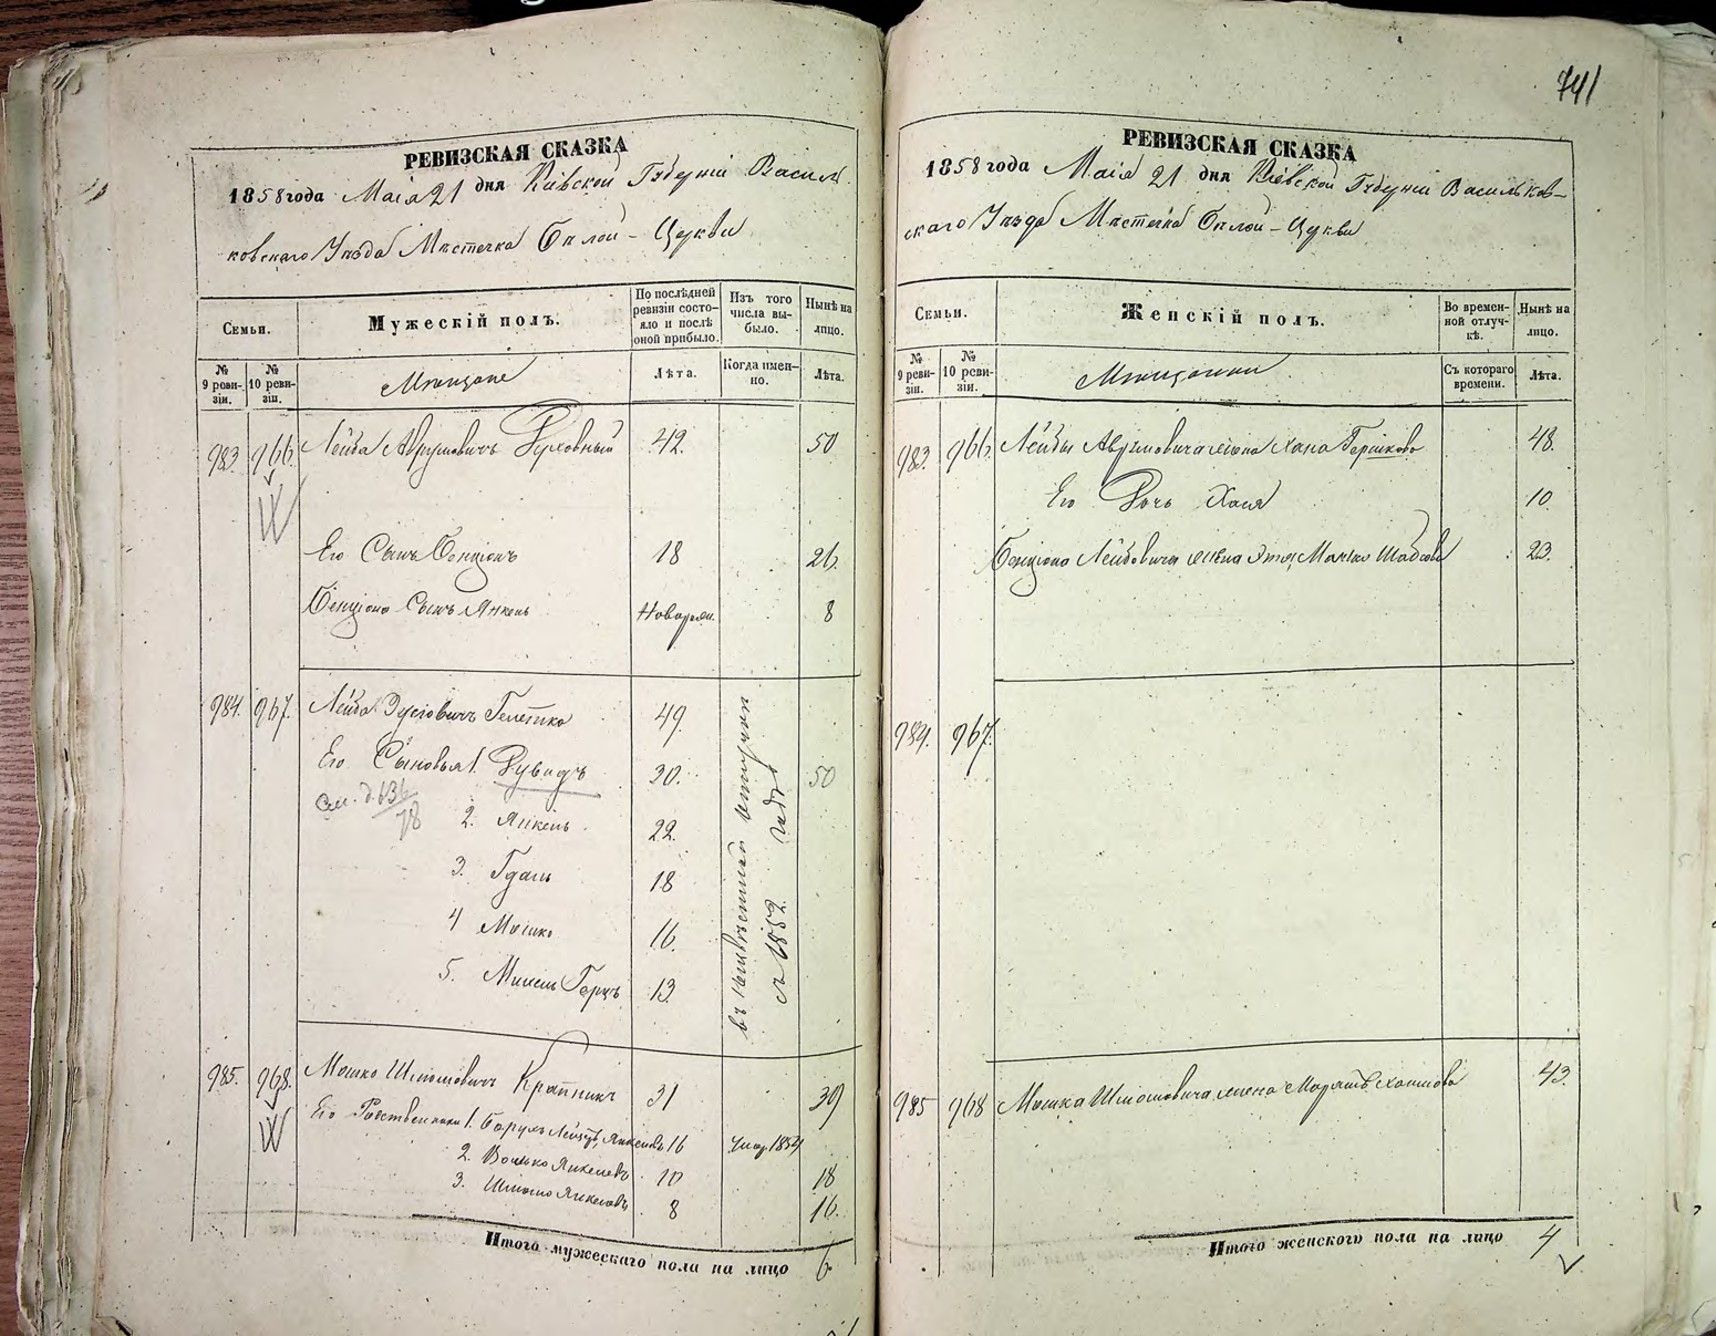 741
РЕВИЗСКАЯ СКАЗКА
1858 года Маія 21 дня Кіевской Губерніи Василь
ковскаго Уѣзда Мѣстечка Бѣлой - Церкви
Семьи.
Мужескій полъ.
По послѣдней ревизіи состояло и послѣ оной прибыло.
Изъ того числа выбыло.
Нынѣ на лицо.
№ 9 ревизіи.
№ 10 ревизіи.
Мѣщане
Лѣта.
Когда именно.
Лѣта.
983. 966. Лейба Аврумовичъ Духовный 42. 50
Его Сынъ Бенціонъ 18 26.
Бенціона Сынъ Янкель Новорож. 8
984. 967. Лейба Зусіовичъ 49.
Его Сыновья 1. Дувидъ 30. 50
см. д. 136/78
2. Янкель 22.
3. 18
4 Мошко 16.
5. Герцъ 13.
въ неизвѣстной отлучкѣ
съ 1852 года
985. 968. Мошко Шліомовичъ 31 39
Его Родственники 1. Борухъ Янкелевъ 16 Умер. 1854
2. Волько Янкелевъ 10 18
3. Шліомо Янкелевъ 8 16.
Итого мужескаго пола на лицо 6.
РЕВИЗСКАЯ СКАЗКА
1858 года Маія 21 дня Кіевской Губерніи Васильков-
скаго Уѣзда Мѣстечка Бѣлой - Церкви
Семьи.
Женскій полъ.
Во временной отлучкѣ.
Нынѣ на лицо.
№ 9 ревизіи.
№ 10 ревизіи.
Мѣщанки
Съ котораго времени.
Лѣта.
983. 966. Лейбы Аврумовича жена Хана Гершкова 48.
Его Дочь Хася 10
Бенціона Лейбовича жена 23.
984. 967.
985 968 Мошка Шліомовича жена 43.
Итого женскаго пола на лицо 4